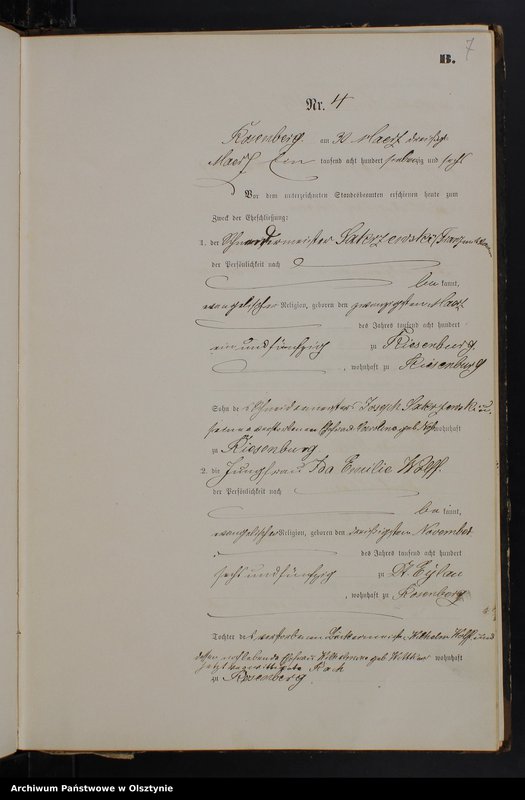 7
B.
Nr. 4
Rosenberg am 30 Maerz dreißigst
Maerz Ein tausend acht hundert siebenzig und sechs
Vor dem unterzeichneten Standesbeamten erschienen heute zum
Zweck der Eheschließung:
1. der Schneidermeister Sakrzewski Franz
der Persönlichkeit nach
be kannt,
evangelischer Religion, geboren den zwanzigsten
des Jahres tausend acht hundert
ein und fünfzig zu Riesenburg
, wohnhaft zu Riesenburg
Sohn des Schneidermeisters Joseph Sakrzewski u.
seiner verstorbenen Ehefrau Caroline geb. wohnhaft
zu Riesenburg
2. die Jungfrau Ida Emilie Wolff
der Persönlichkeit nach
be kannt,
evangelischer Religion, geboren den dreißigsten November
des Jahres tausend acht hundert
sechs und fünfzig zu Dt. Eylau
, wohnhaft zu Rosenberg
Tochter des verstorbenen Bäckermeister Wilhelm Wolff und
dessen Ehefrau Wilhelmine geb. wohnhaft
jetzt
zu Rosenberg.
Archiwum Państwowe w Olsztynie